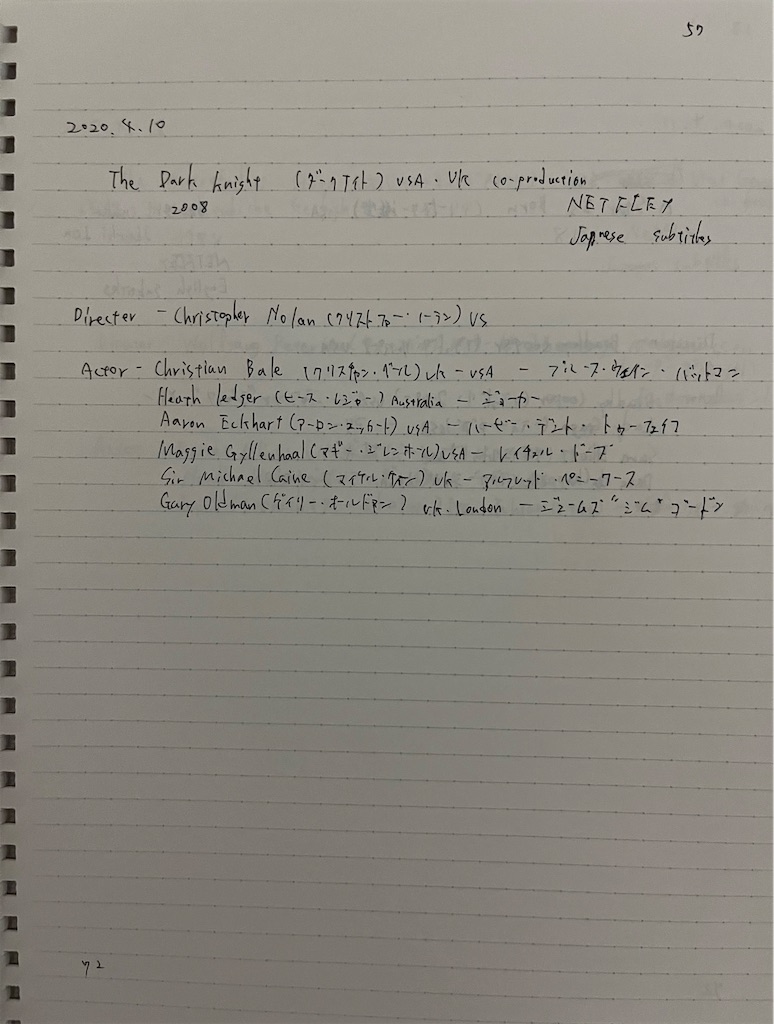 57
2020.4.10
The Dark knight (ダークナイト) USA・UK co-production
2008 NETFLEX
Japnese subtitles
Directer - Christopher Nolan (クリストファー・ノーラン) US
Actor - Christian Bale (クリスチャン・ベール) UK - USA - ブルース・ウェイン・バットマン
Heath ledger (ヒース・レジャー) Australia - ジョーカー
Aaron Eckhart (アーロン・エッカート) USA - ハービー・デント・トゥーフェイス
Maggie Gyllenhaal (マギー・ジレンホール) USA - レイチェル・ドーズ
Sir Michael Caine (マイケル・ケイン) UK - アルフレッド・ペニーワース
Gary Oldman (ゲイリー・オールドマン) UK. London - ジェームズ "ジム" ゴードン
72